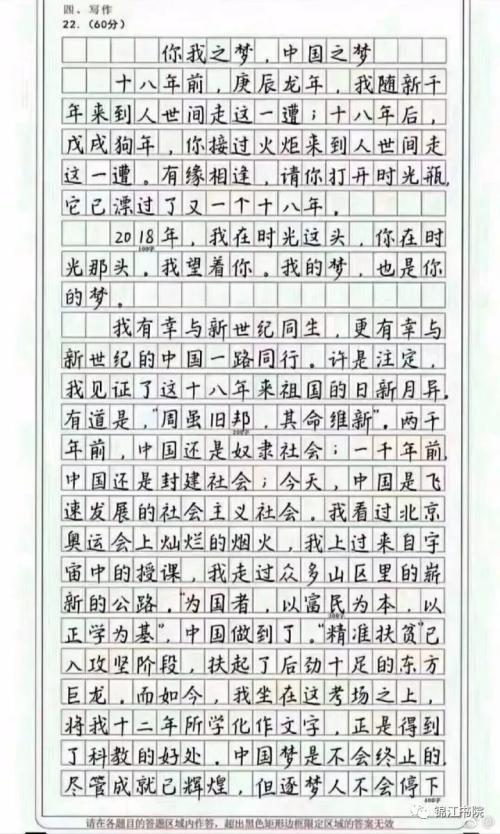 四、写作
22.(60分)
你我之梦,中国之梦
十八年前,庚辰龙年,我随新千
年来到人世间走这一遭;十八年后,
戊戌狗年,你接过火炬来到人世间走
这一遭。有缘相逢,请你打开时光瓶,
它已漂过了又一个十八年。
2018年,我在时光这头,你在时
100字
光那头。我望着你。我的梦,也是你
的梦。
我有幸与新世纪同生,更有幸与
新世纪的中国一路同行。许是注定,
我见证了这十八年来祖国的日新月异。
有道是,"周虽旧邦,其命维新"。两千
200字
年前,中国还是奴隶社会;一千年前,
中国还是封建社会;今天,中国是飞
速发展的社会主义社会。我看过北京
奥运会上灿烂的烟火,我上过来自宇
宙中的授课,我走过众多山区里的崭
新的公路。"为国者,以富民为本,以
300字
正学为基",中国做到了。"精准扶贫"已
入攻坚阶段,扶起了后劲十足的东方
巨龙。而如今,我坐在这考场之上,
将我十二年所学化作文字,正是得到
了科教的好处。中国梦是不会终止的,
尽管成就已辉煌,但逐梦人不会停下
400字
请在各题目的答题区域内作答,超出黑色矩形边框限定区域的答案无效
锦江书院